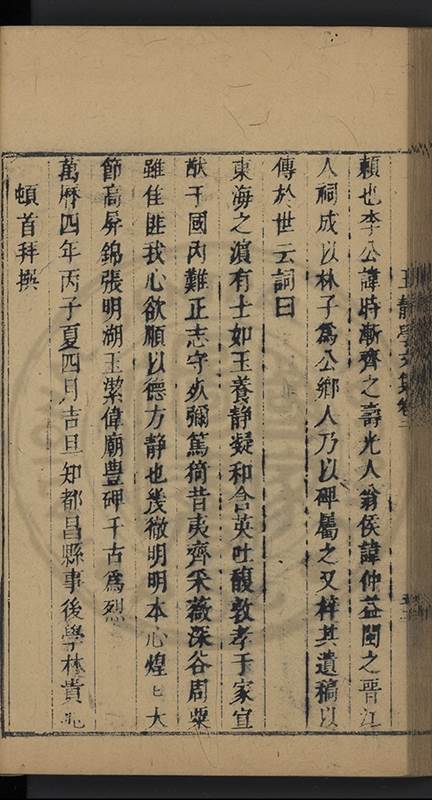 賴也李公諱時漸齊之壽光人翁侯諱仲益閩之晋江
人祠成以林子為公鄉人乃以碑屬之又梓其遺稿以
傳於世云詞曰
東海之濵有士如玉養静凝和含英吐馥敦孝于家宣
猷于國内難正志守㱾彌篤猗昔夷齊采薇深谷周粟
雖佳匪我心欲順以德方静也幾微明明本心煌匕大
節高屏錦張明湖玉潔偉廟豐碑千古為烈
萬曆四年丙子夏四月吉旦知都昌縣事後學林貴兆
頓首拜撰
王静學文集卷